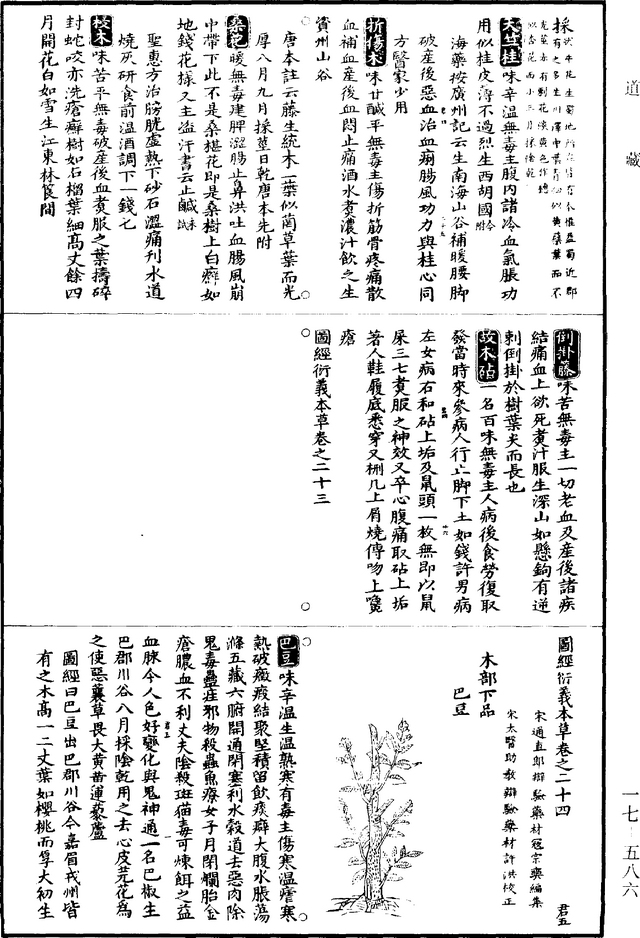 道藏
採
天竺桂味辛温無毒主腹内諸冷血氣脹功
用似桂皮薄不過烈生西胡國今附
海藥按廣州記云生南海山谷補暖腰脚
破産後惡血治血痢腸風功力與桂心同
方醫家少用
折傷木味甘鹹平無毒主傷折筋骨疼痛散
血補血産後血悶止痛酒水煮濃汁飲之生
資州山谷
唐本註云藤生繞木一葉似菵草葉而光
厚八月九月採莖日乾唐本先附
桑花暖無毒建脾澀腸止鼻洪吐血腸風崩
中帶下此不是桑椹花即是桑樹上白癬如
地錢花樣又主盗汗書云止鹹
聖惠方治膀胱虚熱下砂石澀痛利水道
燒灰研食前温酒調下一錢匕
味苦平無毒破産後血煮服之葉擣碎
封蛇咬亦洗瘡癬樹如石榴葉細高丈餘四
月開花白如雪生江東林筤間
倒掛藤味苦無毒主一切老血及産後諸疾
結痛血上欲死煮汁服生深山如懸鉤有逆
刺倒掛於樹葉尖而長也
故木砧一名百味無毒主人病後食勞復取
發當時來參病人行止脚下土如錢許男病
左女病右和砧上垢及鼠頭一枚無即以鼠
屎三七煮服之神效又卒心腹痛取砧上垢
著人鞋履底悉穿又栦几上屑燒傅吻上㿈
瘡
圖經衍義本草卷之二十三
圖經衍義本草卷之二十四
君五
宋通直郎辯驗藥材寇宗奭編集
宋太醫助教辯驗藥材許洪校正
木部下品
巴豆
巴豆味辛温生温熟寒有毒主傷寒温瘧寒
熱破癥瘕結聚堅積留飲痰癖大腹水脹蕩
滌五藏六腑開通閉塞利水穀道去惡肉除
鬼毒蠱疰邪物殺蟲魚療女子月閉爛胎金
瘡膿血不利丈夫陰殺斑猫毒可煉餌之益
血脉令人色好變化與鬼神通一名巴椒生
巴郡川谷八月採陰乾用之去心皮芫花爲
之使惡蘘草畏大黄黄連藜蘆
圖經曰巴豆出巴郡川谷今嘉眉戎州皆
有之木高一二丈葉如櫻桃而厚大初生
一七·五八六